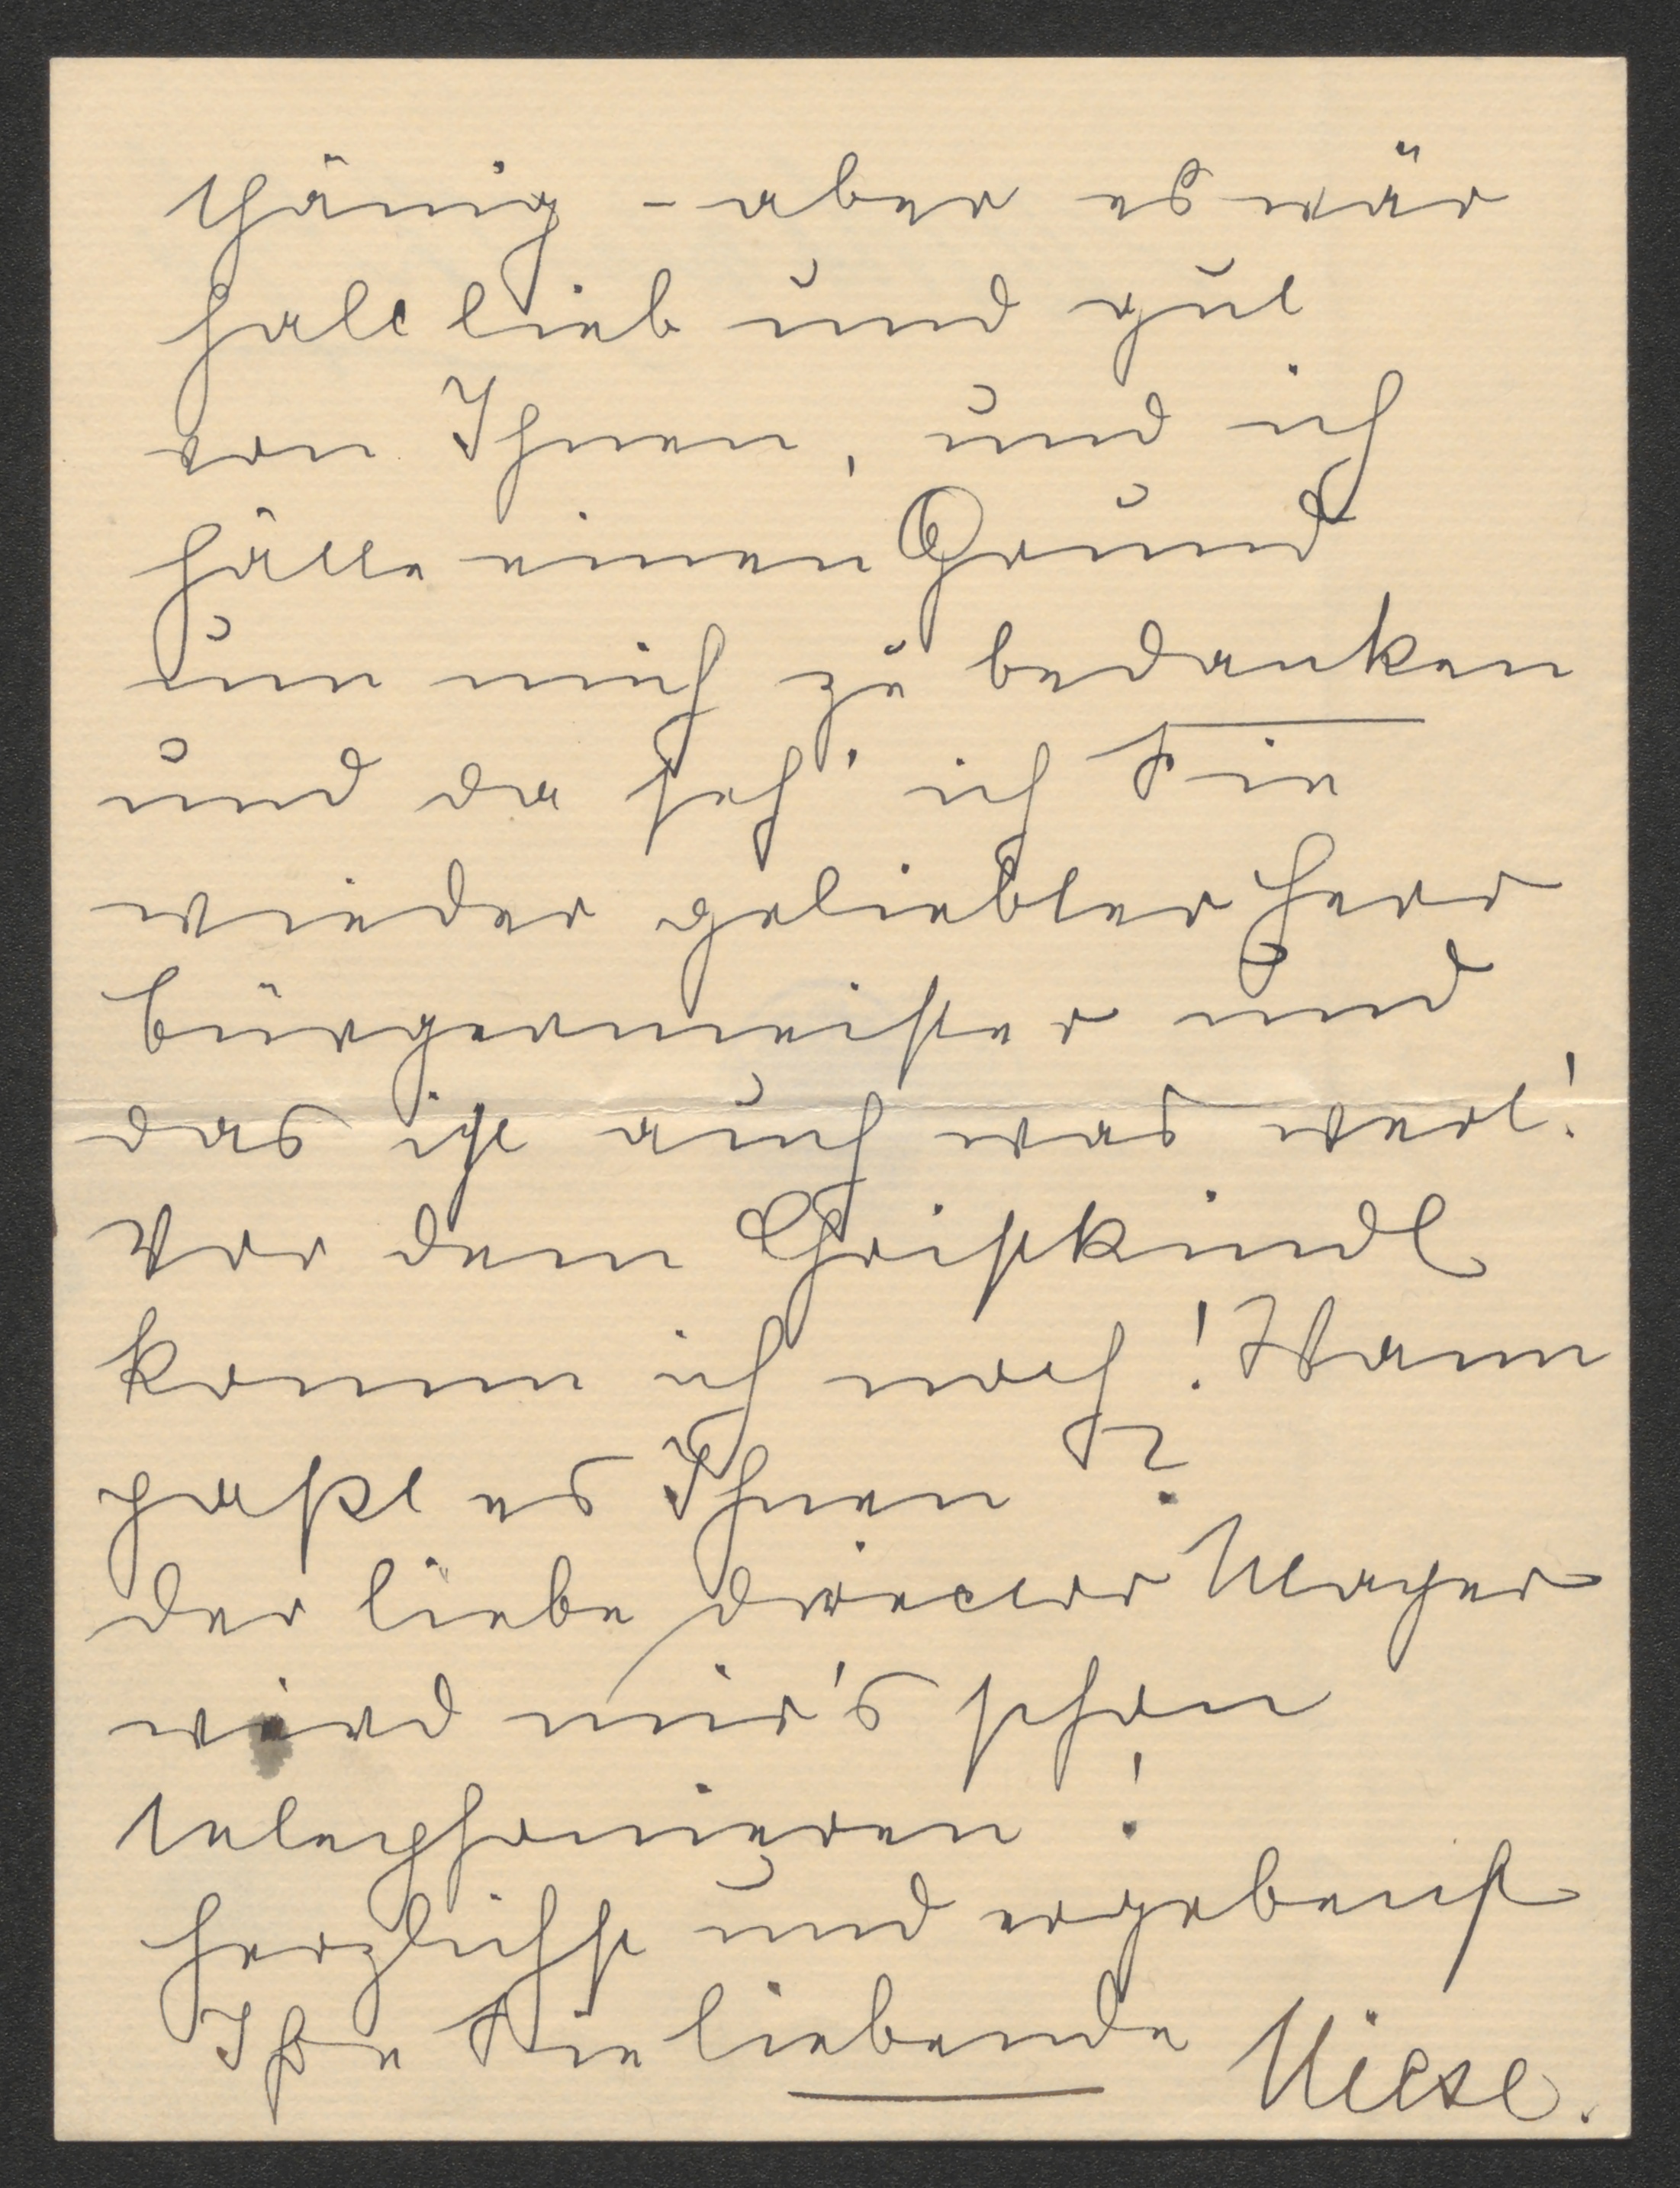 thänig - aber es wär
halt lieb und gut
von Ihnen, und ich
hätte einen Grund
um mich zu bedanken
und da seh' ich Sie
wieder geliebter Herr
Bürgermeister und
das ist auch was wert!
Vor dem Christkindl
komm ich noch! Wann
paßt es Ihnen?
Der liebe Director Mayer
wird mir's schon
telephonieren!
Herzlichst und ergebenst
Ihre Sie liebende Niese.